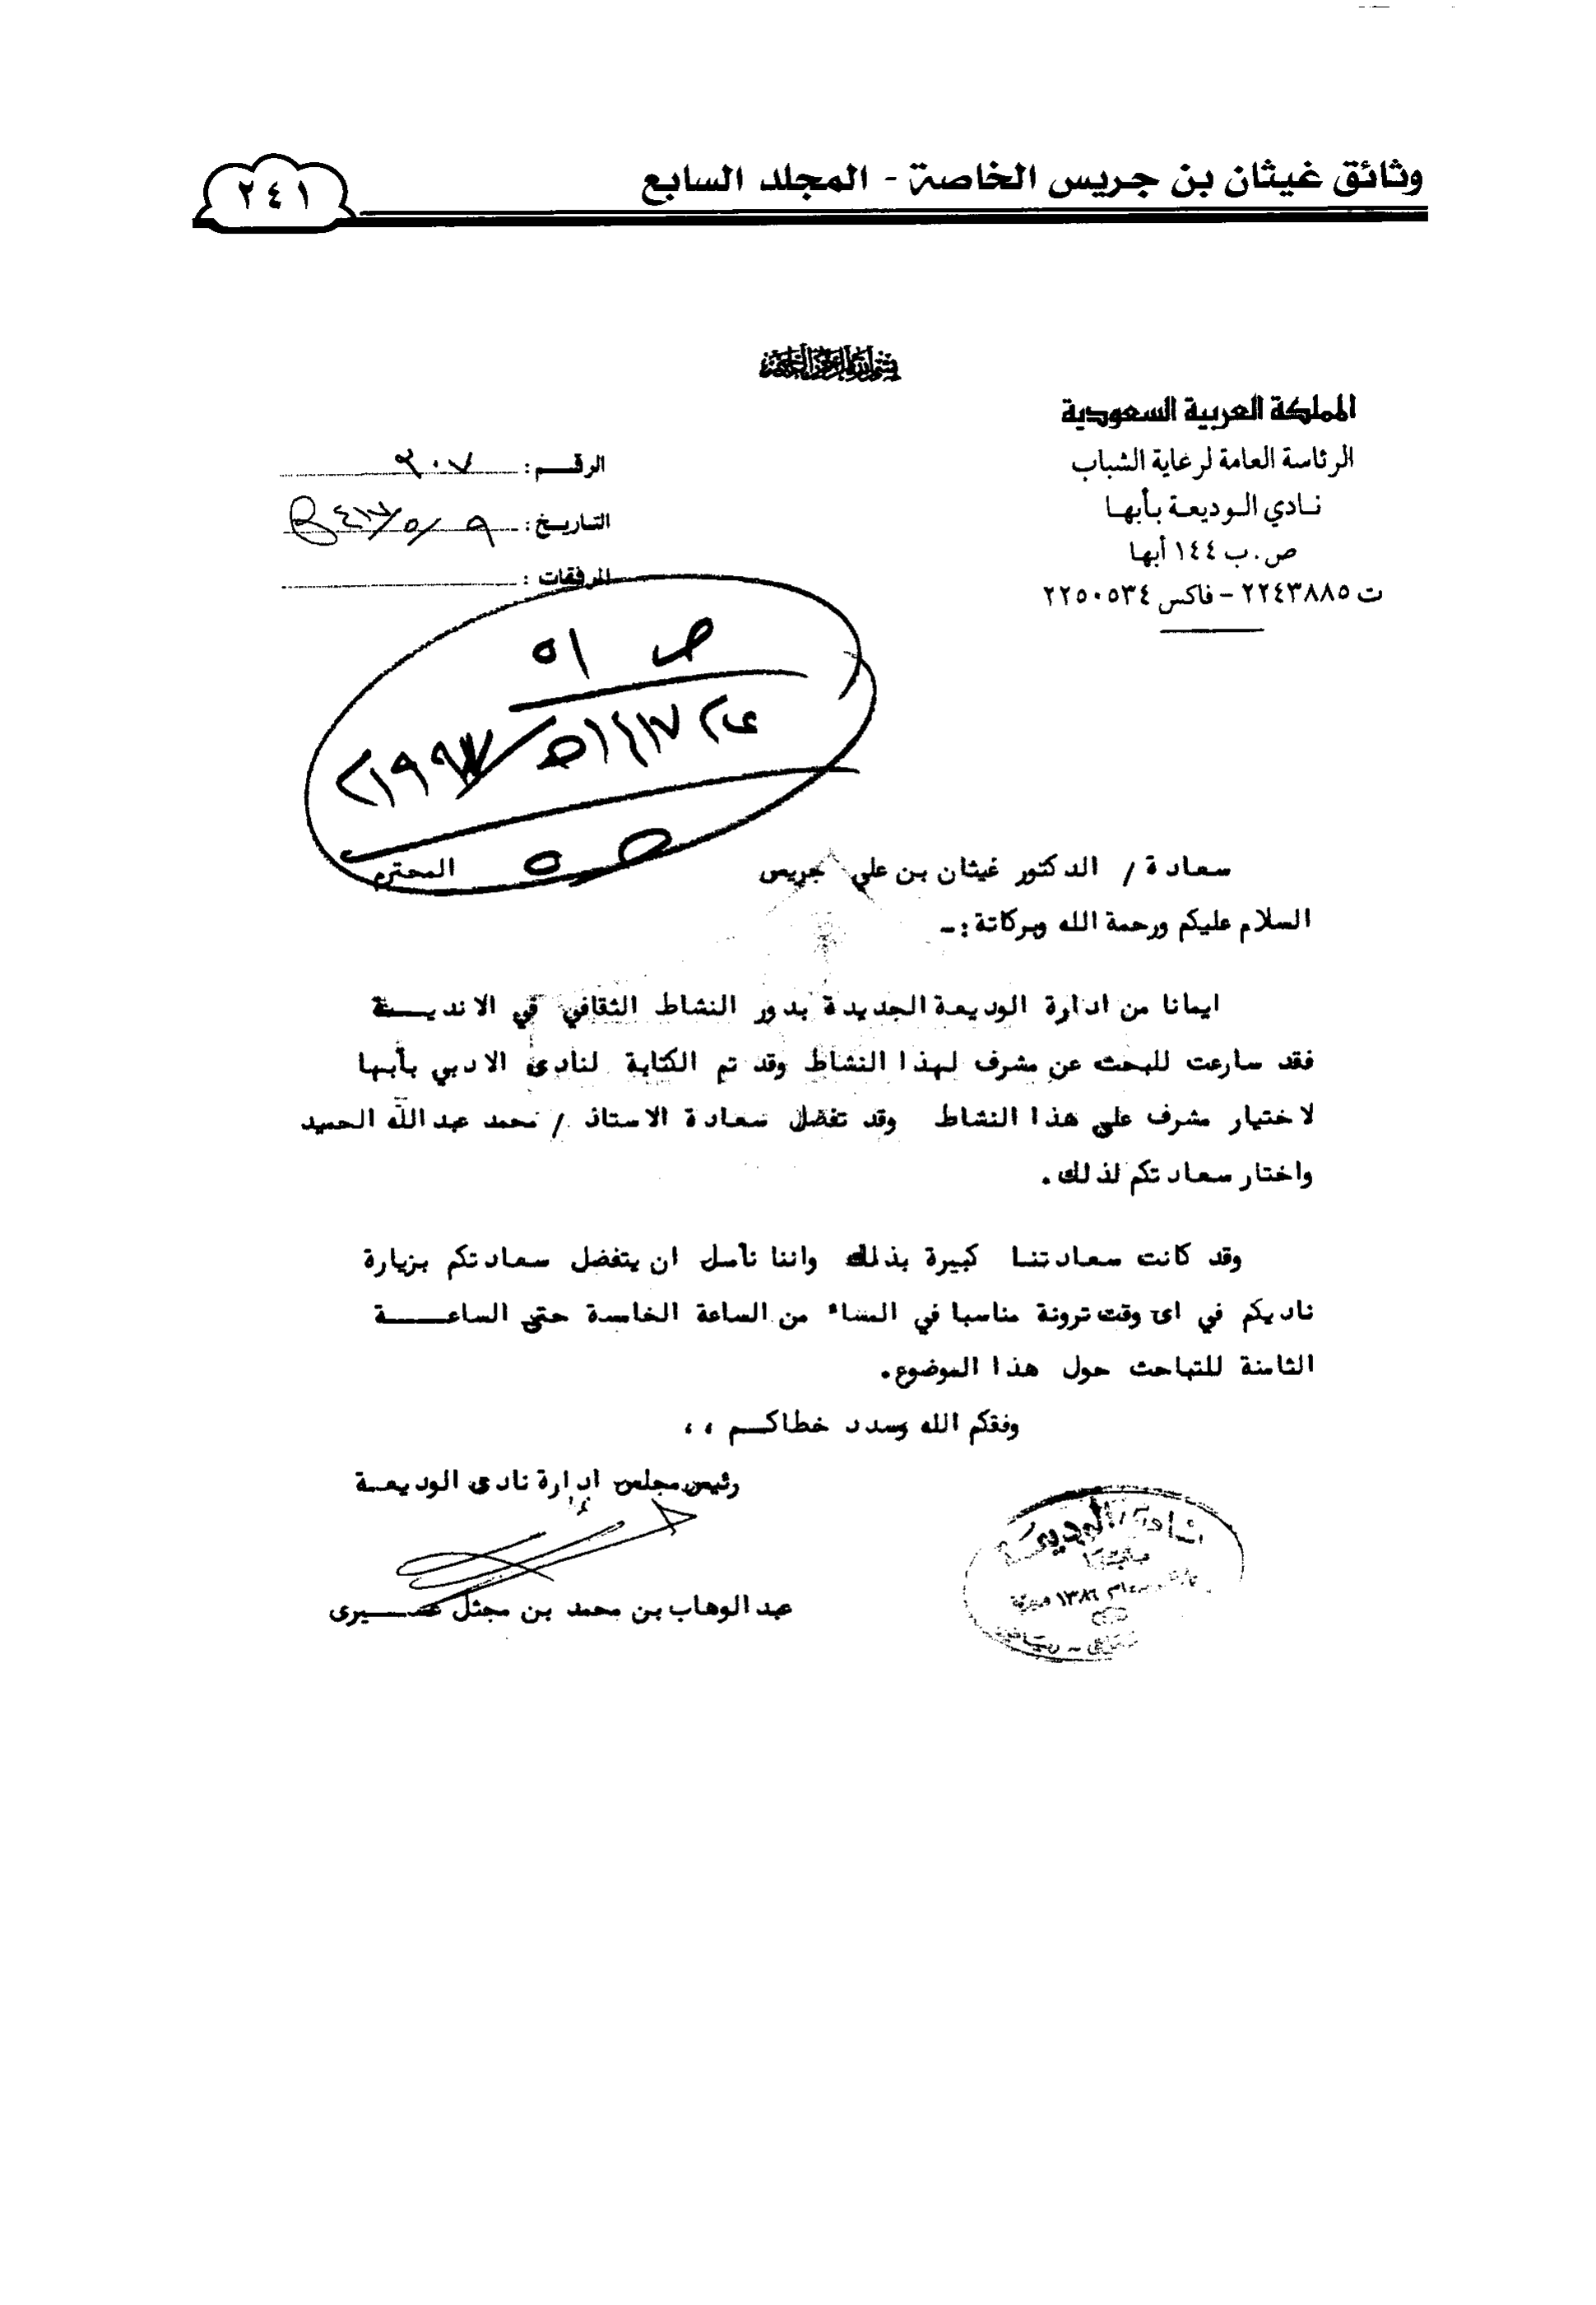 وثائق غيثان بن جريس الخاصة - المجلد السابع
٢٤١
بسم الله الرحمن الرحيم
المملكة العربية السعودية
الرئاسة العامة لرعاية الشباب
نادي الوديعة بأبها
ص.ب ١٤٤ أبها
ت ٢٢٤٣٨٨٥ - فاكس ٢٢٥٠٥٣٤
الرقم: ٢٠٧
التاريخ: ٩ /٥/ ٤١٧
المرفقات:
ص ٥١
١٤١٧هـ/ ١٩٩٧م
ص ٥
سعادة / الدكتور غيثان بن علي جريس المحترم
السلام عليكم ورحمة الله وبركاتة :-
ايمانا من ادارة الوديعة الجديدة بدور النشاط الثقافي في الاندية
فقد سارعت للبحث عن مشرف لهذا النشاط وقد تم الكتابة لنادى الادبي بأبها
لاختيار مشرف على هذا النشاط وقد تفضل سعادة الاستاذ / محمد عبدالله الحميد
واختار سعادتكم لذلك .
وقد كانت سعادتنا كبيرة بذلك واننا نأمل ان يتفضل سعادتكم بزيارة
ناديكم في اى وقت ترونة مناسبا في المساء من الساعة الخامسة حتى الساعة
الثامنة للتباحث حول هذا الموضوع.
وفقكم الله وسدد خطاكم ،،
رئيس مجلس ادارة نادى الوديعة
عبدالوهاب بن محمد بن مجثل عسيرى
نادي الوديعة
بأبها
عام ١٣٨٦ هجرية